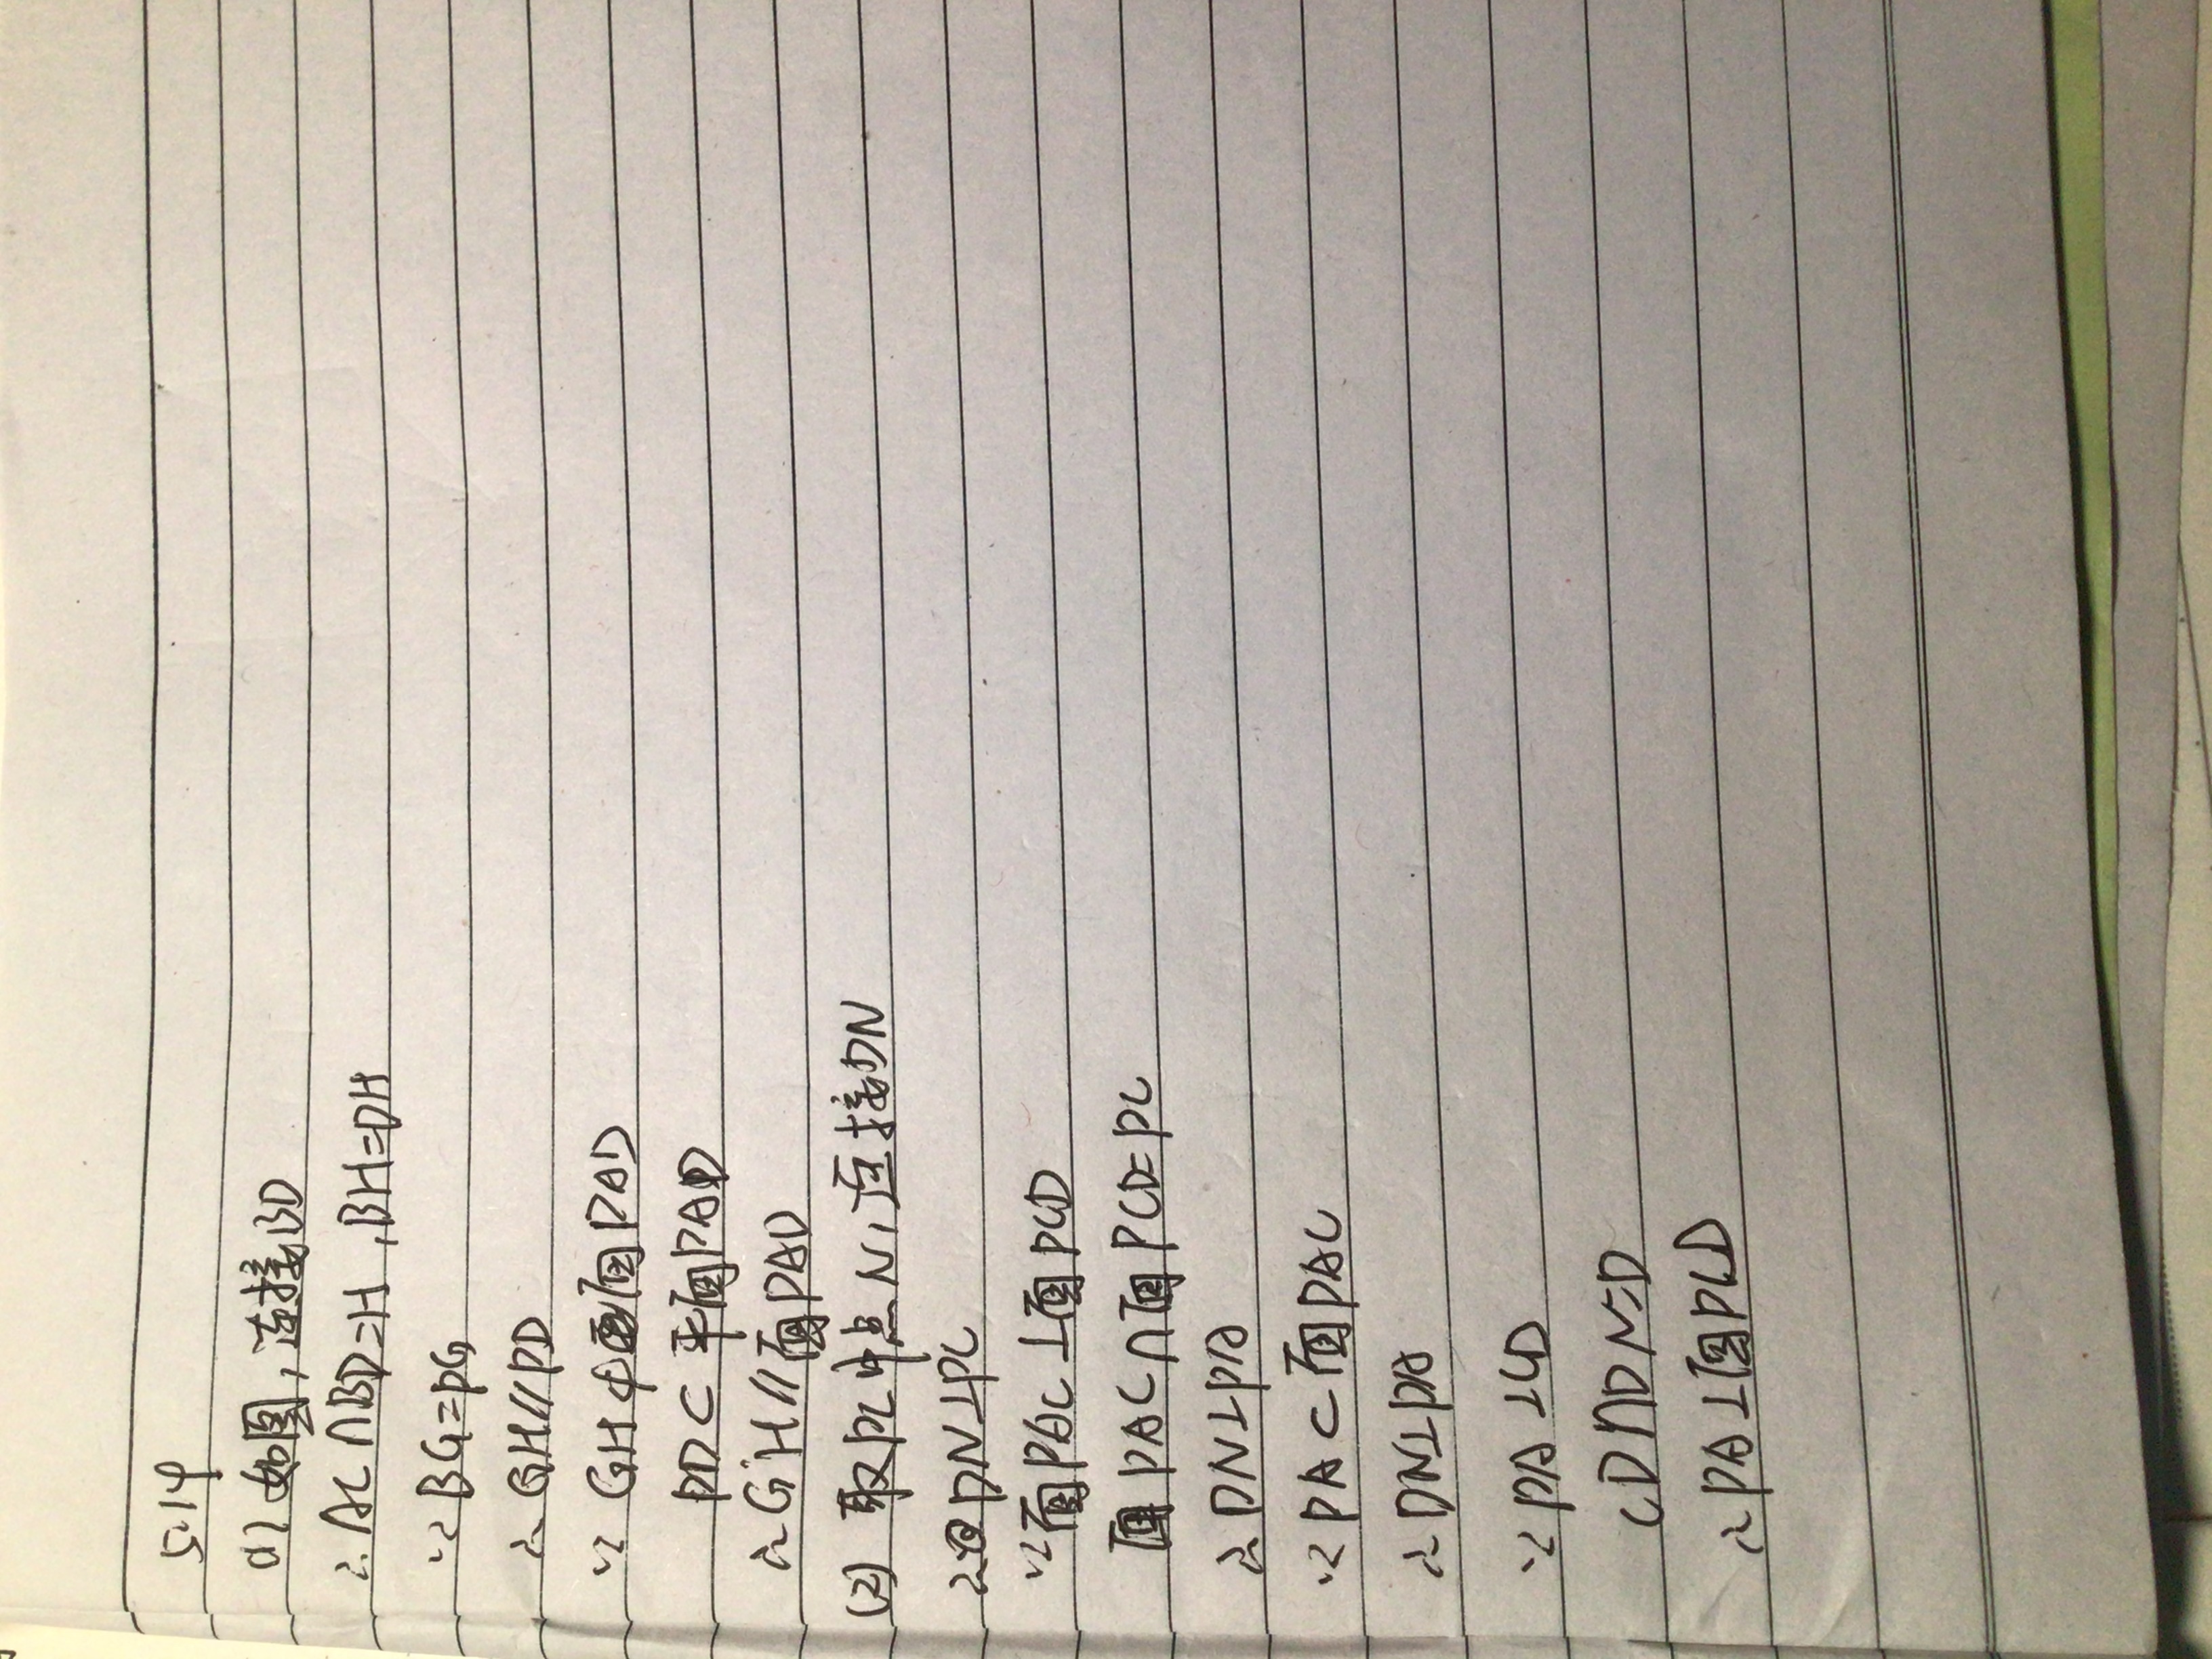 5.14
(1) 如图,连接BD
∴AC∩BD=H,BH=DH
∵BG=PG
∴GH//PD
∵GH⊄面PAD
PD⊂平面PAD
∴GH//面PAD
(2) 取PC中点N,连接DN
∴DN⊥PC
∵面PAC⊥面PCD
面PAC∩面PCD=PC
∴DN⊥PA
∵PA⊂面PAC
∴DN⊥PA
∵PA⊥CD
CD∩DN=D
∴PA⊥面PCD